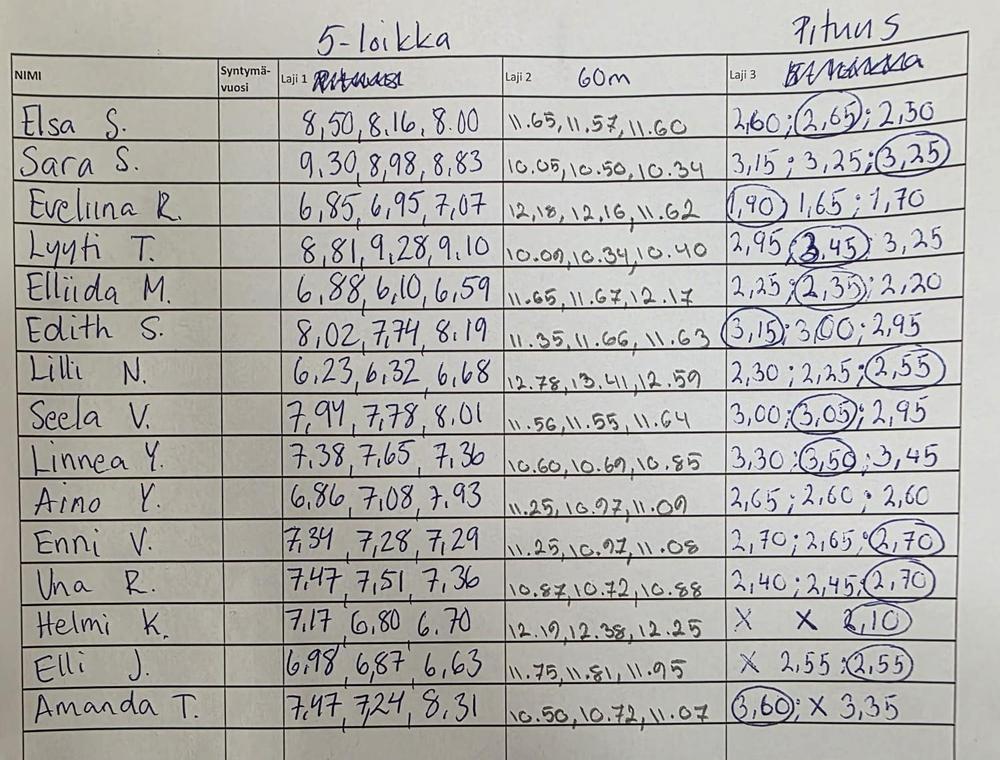 5-loikka Pituus
NIMI Syntymä-vuosi Laji 1 Laji 2 60m Laji 3
Elsa S. 8,50, 8.16, 8.00 11.65, 11.57, 11.60 2,60; 2,65; 2,50
Sara S. 9,30, 8,98, 8,83 10.05, 10.50, 10.34 3,15; 3,25; 3,25
Eveliina R. 6,85, 6,95, 7,07 12,18, 12,16, 11.62 1,90) 1,65; 1,70
Lyyti T. 8,81, 9,28, 9,10 10.09, 10.34, 10.40 2,95; 3,45; 3,25
Elliida M. 6,88, 6,10, 6,59 11.65, 11.67, 12.17 2,25; 2,35; 2,20
Edith S. 8,02, 7,74, 8.19 11.35, 11.66, 11.63 3,15; 3,00; 2,95
Lilli N. 6,23, 6,32, 6,68 12.78, 13.41, 12.59 2,30; 2,25; 2,55
Seela V. 7,94, 7,78, 8.01 11.56, 11.55, 11.64 3,00; 3,05; 2,95
Linnea Y. 7,38, 7,65, 7,36 10.60, 10.69, 10.85 3,30; 3,50; 3,45
Aino Y. 6,86, 7,08, 7,93 11.25, 10.97, 11.09 2,65; 2,60; 2,60
Enni V. 7,34, 7,28, 7,29 11.25, 10.97, 11.08 2,70; 2,65; 2,70
Una R. 7,47, 7,51, 7,36 10.87, 10.72, 10.88 2,40; 2,45; 2,70
Helmi K. 7,17, 6,80, 6.70 12.19, 12.38, 12.25 X X 2,10
Elli J. 6,98, 6,87, 6,63 11.75, 11.81, 11.95 X 2,55; 2,55
Amanda T. 7,47, 7,24, 8,31 10.50, 10.72, 11.07 3,60; X 3,35